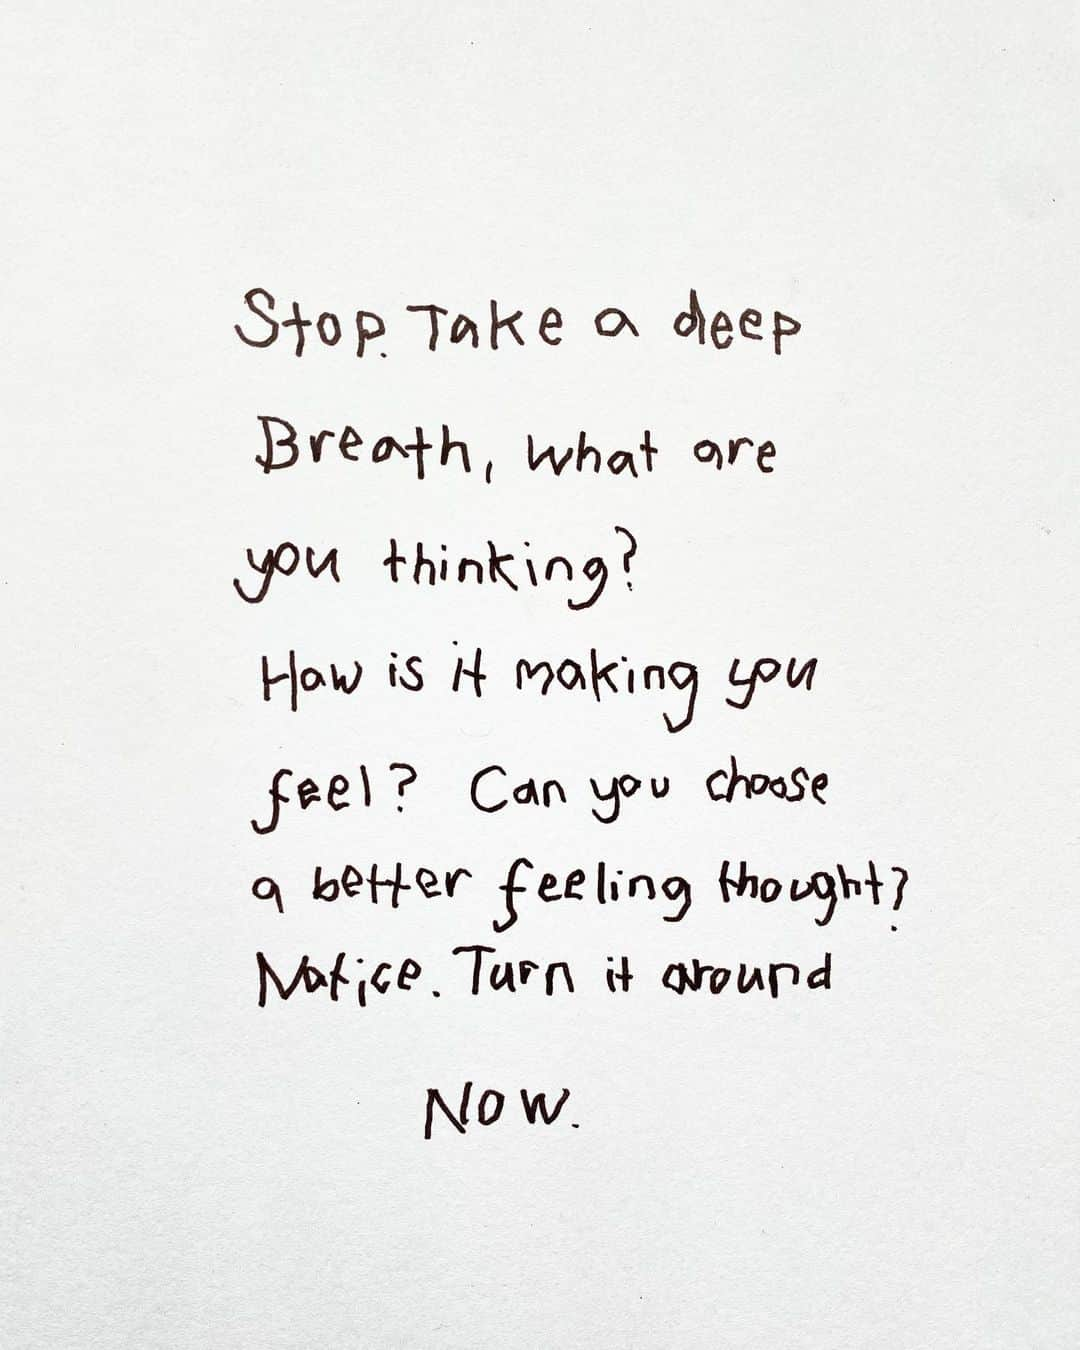 Stop. Take a deep
Breath, what are
you thinking?
How is it making you
feel? Can you choose
a better feeling thought?
Notice. Turn it around
Now.